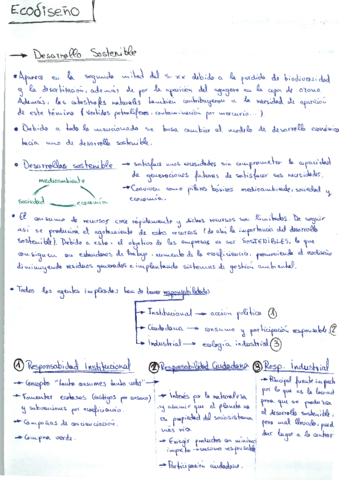 Ecodiseño
→ Desarrollo Sostenible
• Aparece en la segunda mitad del s. XX debido a la perdida de biodiversidad
y la desertización, además de por la aparición del agujero en la capa de ozono
Además, las catastrofes naturales tambien contribuyeron a la necesidad de aparición
de este término (vertidos petrolíferos, contaminación por mercurio...)
• Debido a todo lo mencionado se busca cambiar el modelo de desarrollo económico
hacia uno de desarrollo sostenible.
• Desarrollo sostenible → satisface unas necesidades sin comprometer la capacidad
de generaciones futuras de satisfacer sus necesidades.
medioambiente
sociedad economía
→ Conocemos como pilares básicos medioambiente, sociedad y
economía.
• El consumo de recursos crece rápidamente y dichos recursos son limitados. De seguir
así se producirá el agotamiento de estos recursos (de ahí la importancia del desarrollo
sostenible). Debido a esto, el objetivo de las empresas es ser SOSTENIBLES, lo que
consiguen con estándares de trabajo, aumento de la ecoeficiencia, promoviendo el ecodiseño
disminuyendo residuos generados e implantando sistemas de gestión ambiental.
• Todos los agentes implicados han de tener responsabilidades
→ Institucional → acción política ①
→ Ciudadana → consumo y participación responsable ②
→ Industrial → ecología industrial ③
① Responsabilidad Institucional
→ Concepto "tanto consumes tanto vales"
→ Fomentar ecotasas (castigos por consumo)
y subvenciones por ecoeficiencia.
→ Campañas de concienciación.
→ Compra verde.
② Responsabilidad Ciudadana
→ Interés por la naturaleza
y asumir que el planeta no
es propiedad del sociosistema
más rico
→ Exigir productos con mínimo
impacto → consumo responsable
→ Participación ciudadana.
③ Resp. industrial
→ Principal fuente impacto
por lo que es la
para que se produzca
el desarrollo sostenible,
pero mal llevado, puede
dar lugar a lo contrar